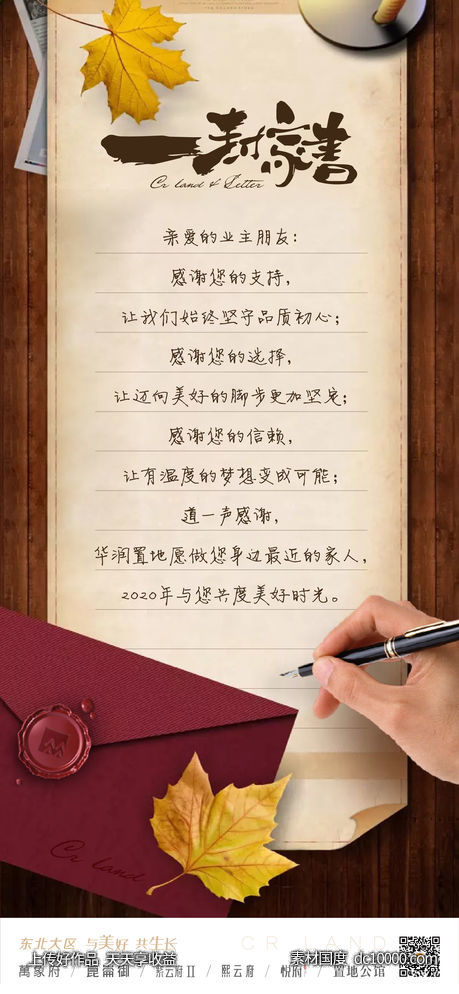 一封家書
Cr land & Letter
亲爱的业主朋友：
感谢您的支持，
让我们始终坚守品质初心；
感谢您的选择，
让迈向美好的脚步更加坚定；
感谢您的信赖，
让有温度的梦想变成可能；
道一声感谢，
华润置地愿做您身边最近的家人，
2020年与您共度美好时光。
Cr land
东北大区 与美好 共生长
CR LAND
上传好作品 天天享收益
素材国度 dc10000.com
萬象府 / 崑崙御 / 紫云府II / 熙云府 / 悦府 / 置地公馆